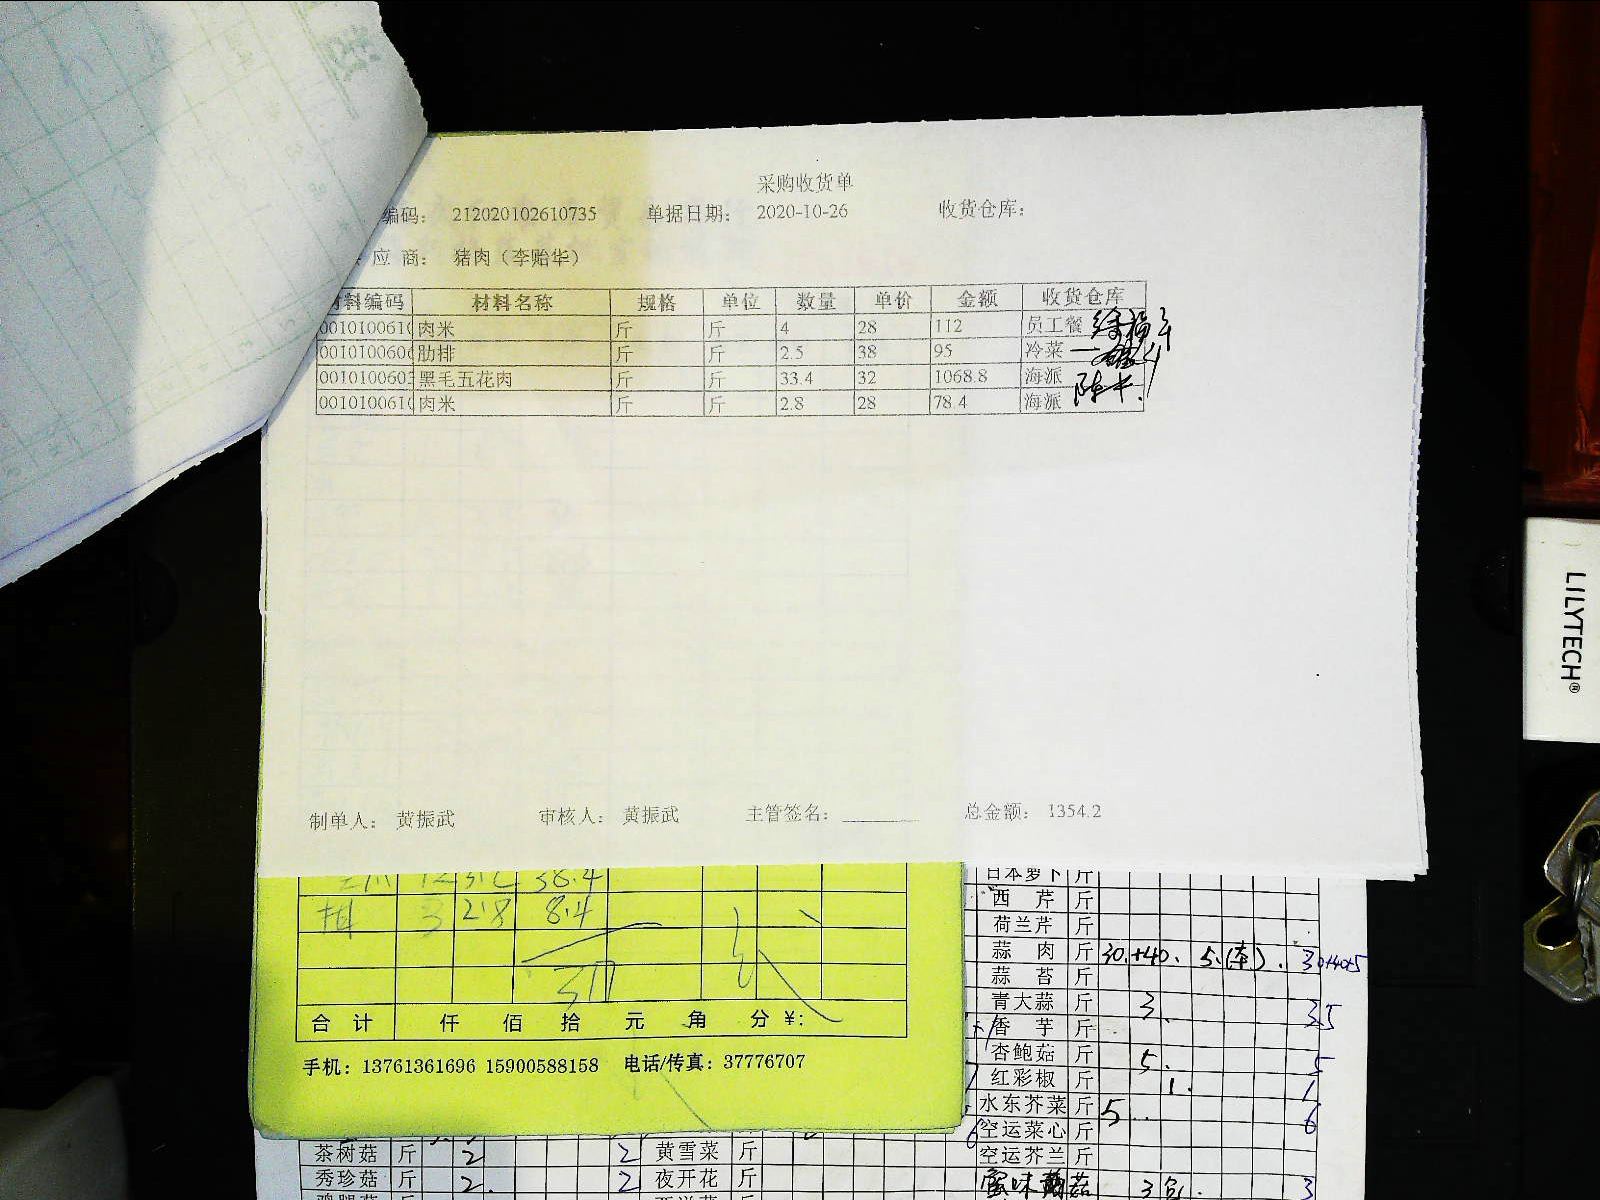 采购收货单
编码： 212020102610735 单据日期： 2020-10-26 收货仓库：
应 商： 猪肉（李贻华）
材料编码 材料名称 规格 单位 数量 单价 金额 收货仓库
0010100610 肉米 斤 斤 4 28 112 员工餐
0010100606 肋排 斤 斤 2.5 38 95 冷菜
0010100603 黑毛五花肉 斤 斤 33.4 32 1068.8 海派
0010100610 肉米 斤 斤 2.8 28 78.4 海派
制单人： 黄振武 审核人： 黄振武 主管签名： 总金额： 1354.2
38.4
3 2.8 8.4
合 计 仟 佰 拾 元 角 分 ¥:
手机：13761361696 15900588158 电话/传真：37776707
日本萝卜 斤
西 芹 斤
荷兰芹 斤
蒜 肉 斤 30.+40. 5.(本). 30+40+5
蒜 苔 斤
青大蒜 斤 3. 35
香 芋 斤
杏鲍菇 斤 5. 5
红彩椒 斤 1. 1
水东芥菜 斤 5 6
空运菜心 斤
空运芥兰 斤
3包. 3
茶树菇 斤 2 2 黄雪菜 斤
秀珍菇 斤 2. 2 夜开花 斤
LILYTECH®